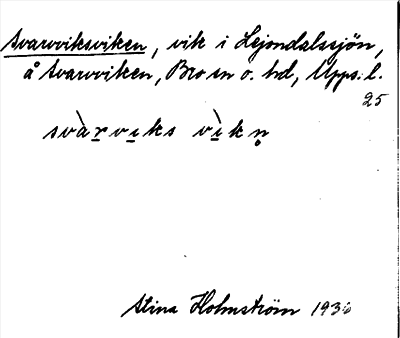 Svarvviksviken, vik i Lejondalssjön,
å Svarvviken, Bro sn o. hd, Upps. l.
25
svàrviks vìkn̥
Stina Holmström 1936